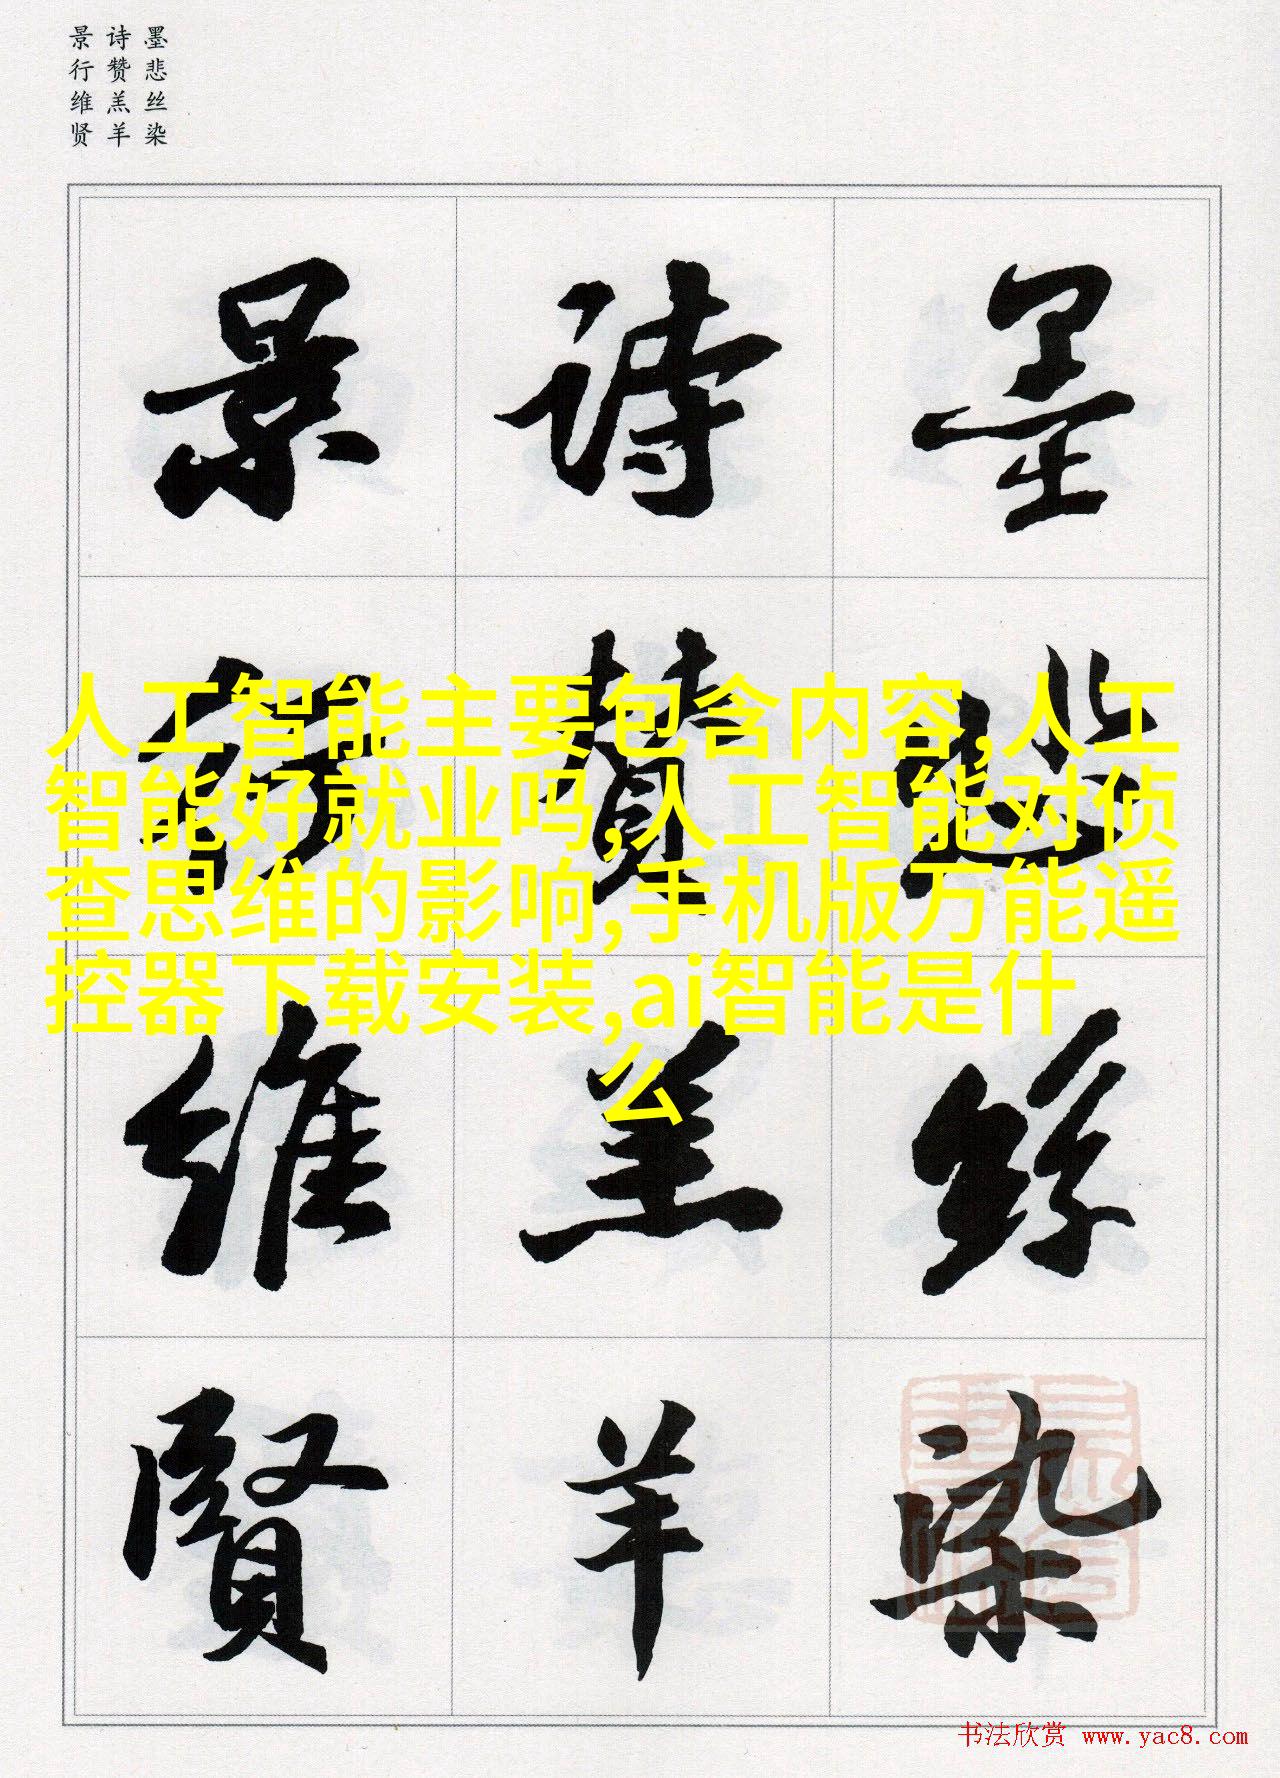 墨悲丝染
诗赞羔羊
景行维贤
墨悲絲染
詩贊羔羊
景行維賢
人工智能主要包含内容,人工
智能好就业吗,人工智能对侦
查思维的影响,手机版万能遥
控器下载安装,ai智能是什
么
书法欣赏 www.yac8.com